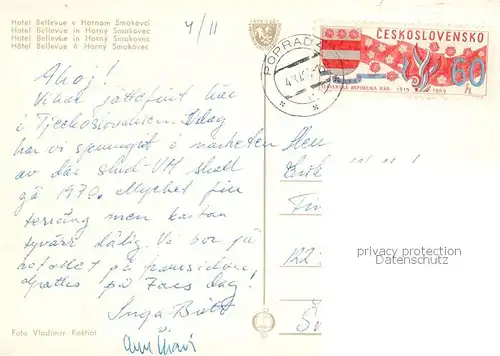 Hotel Bellevue v Hornom Smokovci
Hotel Bellevue in Horný Smokovec
Hotel Bellevue in Horný Smokovec
Hôtel Bellevue à Horný Smokovec
4/11
POPRAD
ČESKOSLOVENSKO
SLOVENSKÁ REPUBLIKA RÁD 1919 1969
60 h
Ahoj!
Vi har jättefint här
i Tjeckoslovakien. Idag
har vi sprungit i närheten
av där stud-VM skall
gå 1970. Mycket fin
terräng men kartan
tyvärr dålig. Vi bor på
hotellet på framsidan.
Grattis på Fars dag!
Inga-Britt
122
privacy protection
Datenschutz
Foto Vladimír Koštial